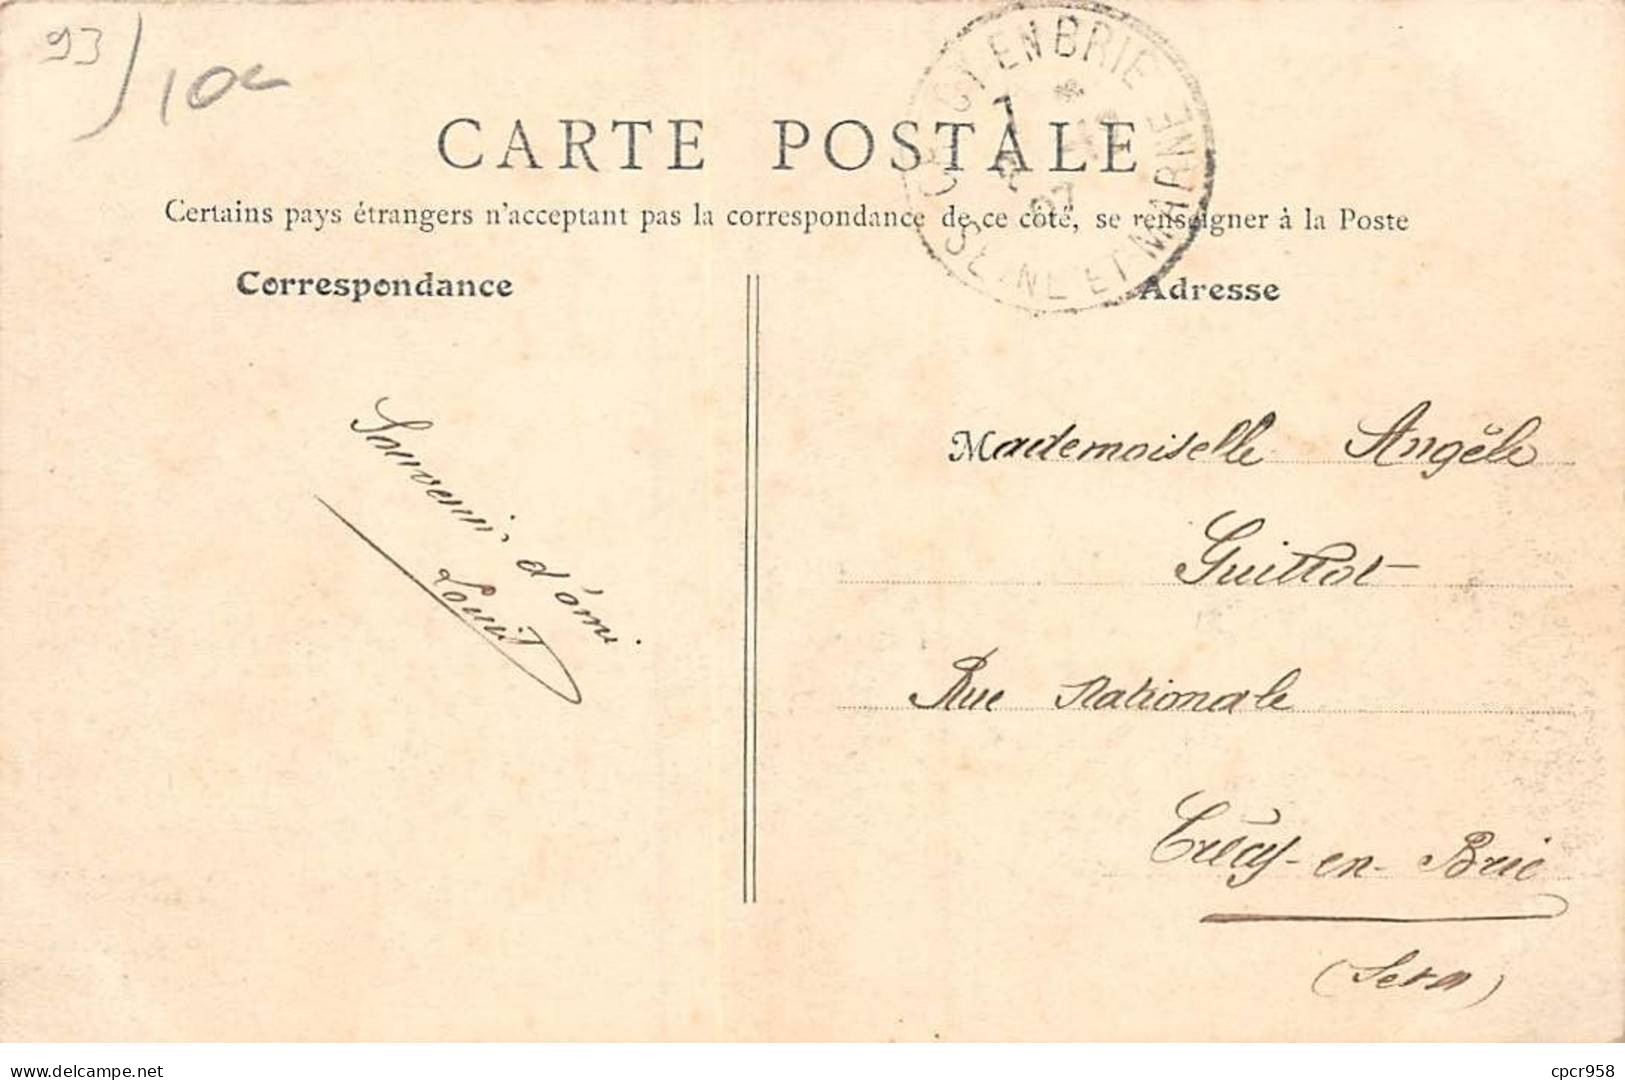 93
10c
CRÉCY EN BRIE
7
07
SEINE ET MARNE
CARTE POSTALE
Certains pays étrangers n'acceptant pas la correspondance de ce côté, se renseigner à la Poste
Correspondance
Adresse
Souvenir, d'ami
Mademoiselle Angèle
Guillot
Rue Nationale
Crécy-en-Brie
(Set M)
www.delcampe.net
cpcr958